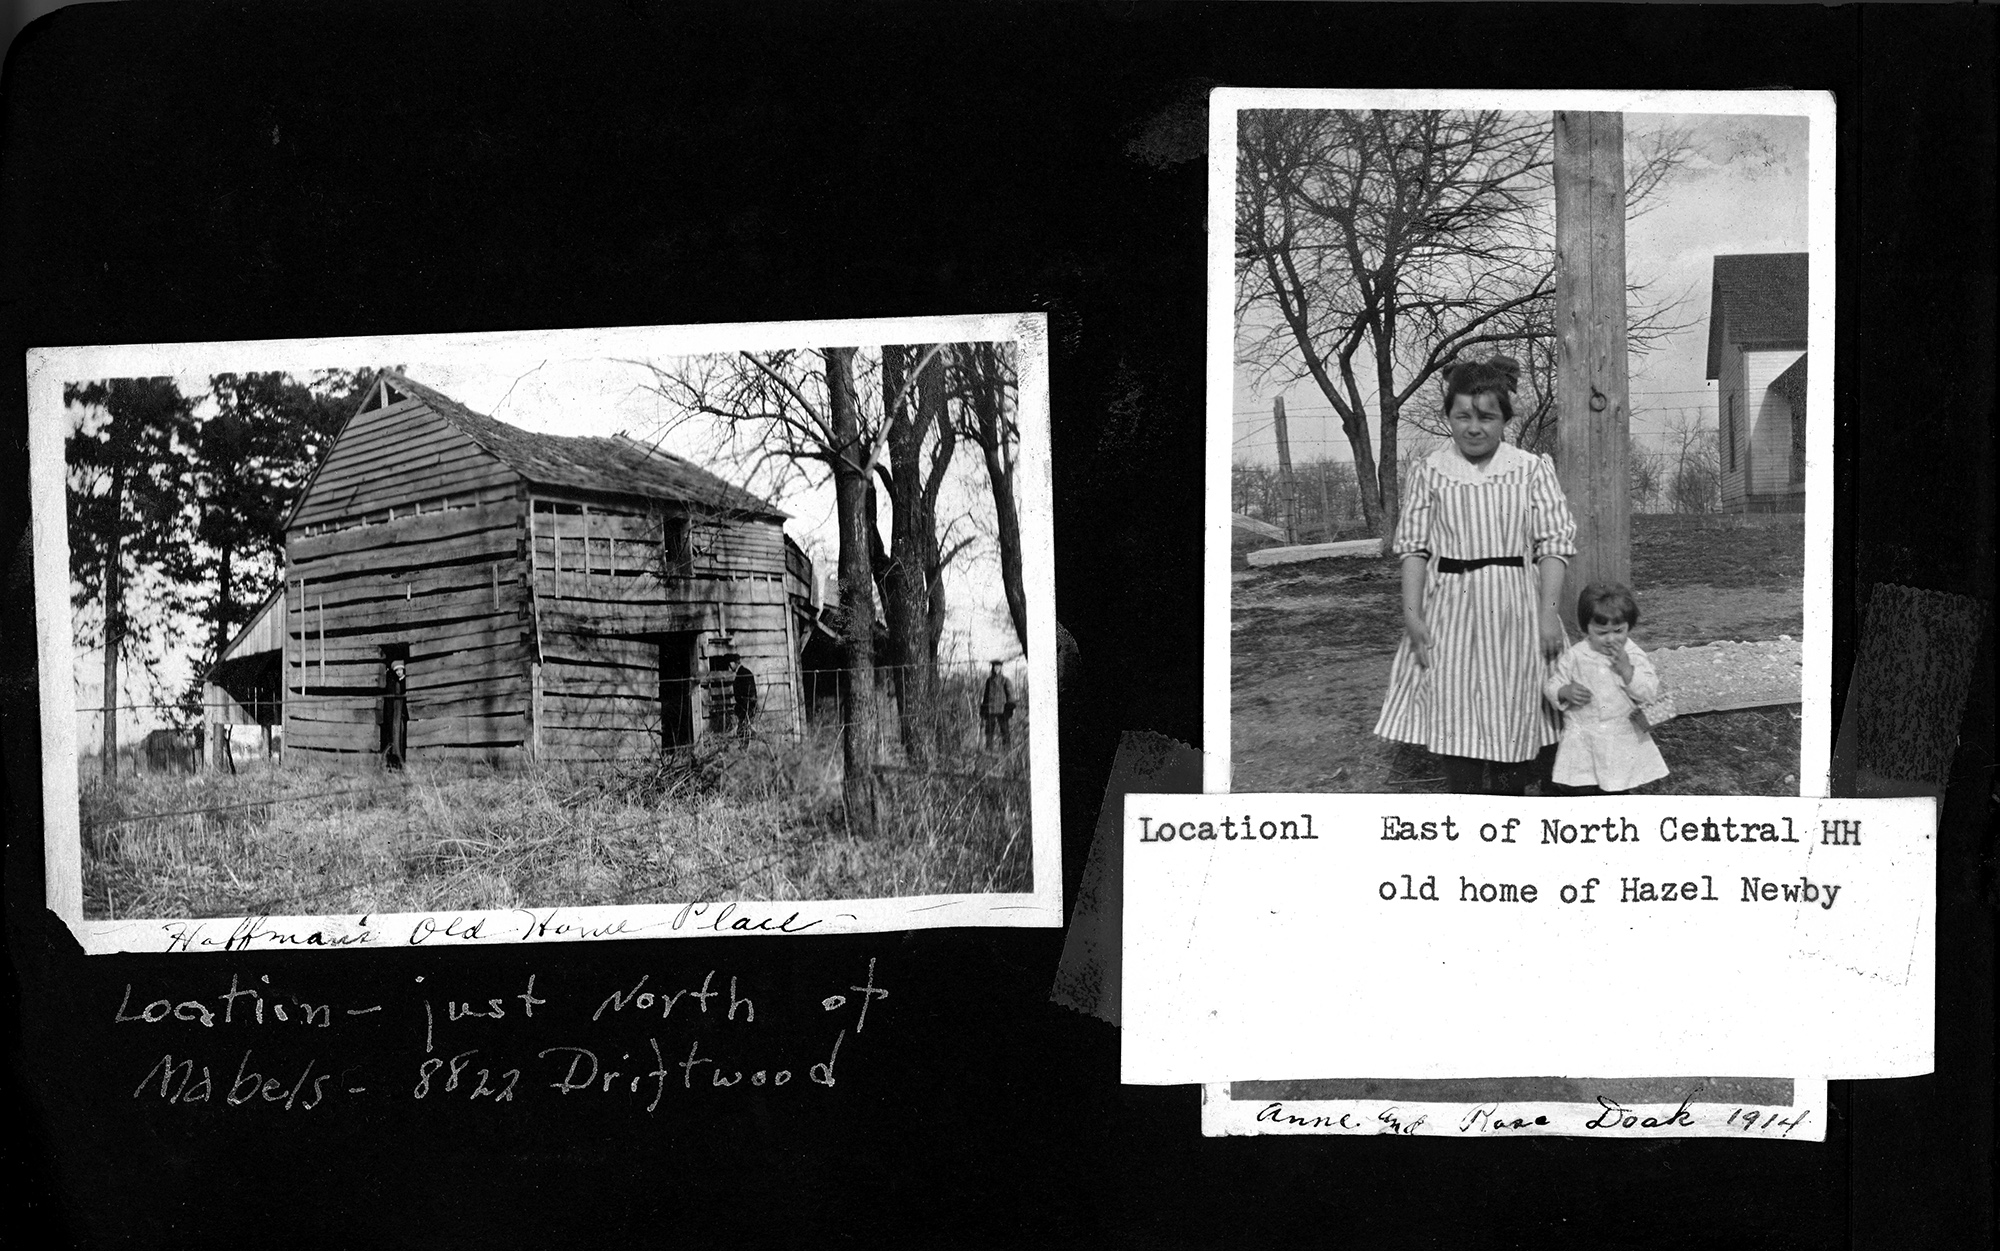 Hoffman's Old Home Place -
Location - just North of
Mabels - 8822 Driftwood
Locationl East of North Central HH
old home of Hazel Newby
Anne and Rose Doak 1914